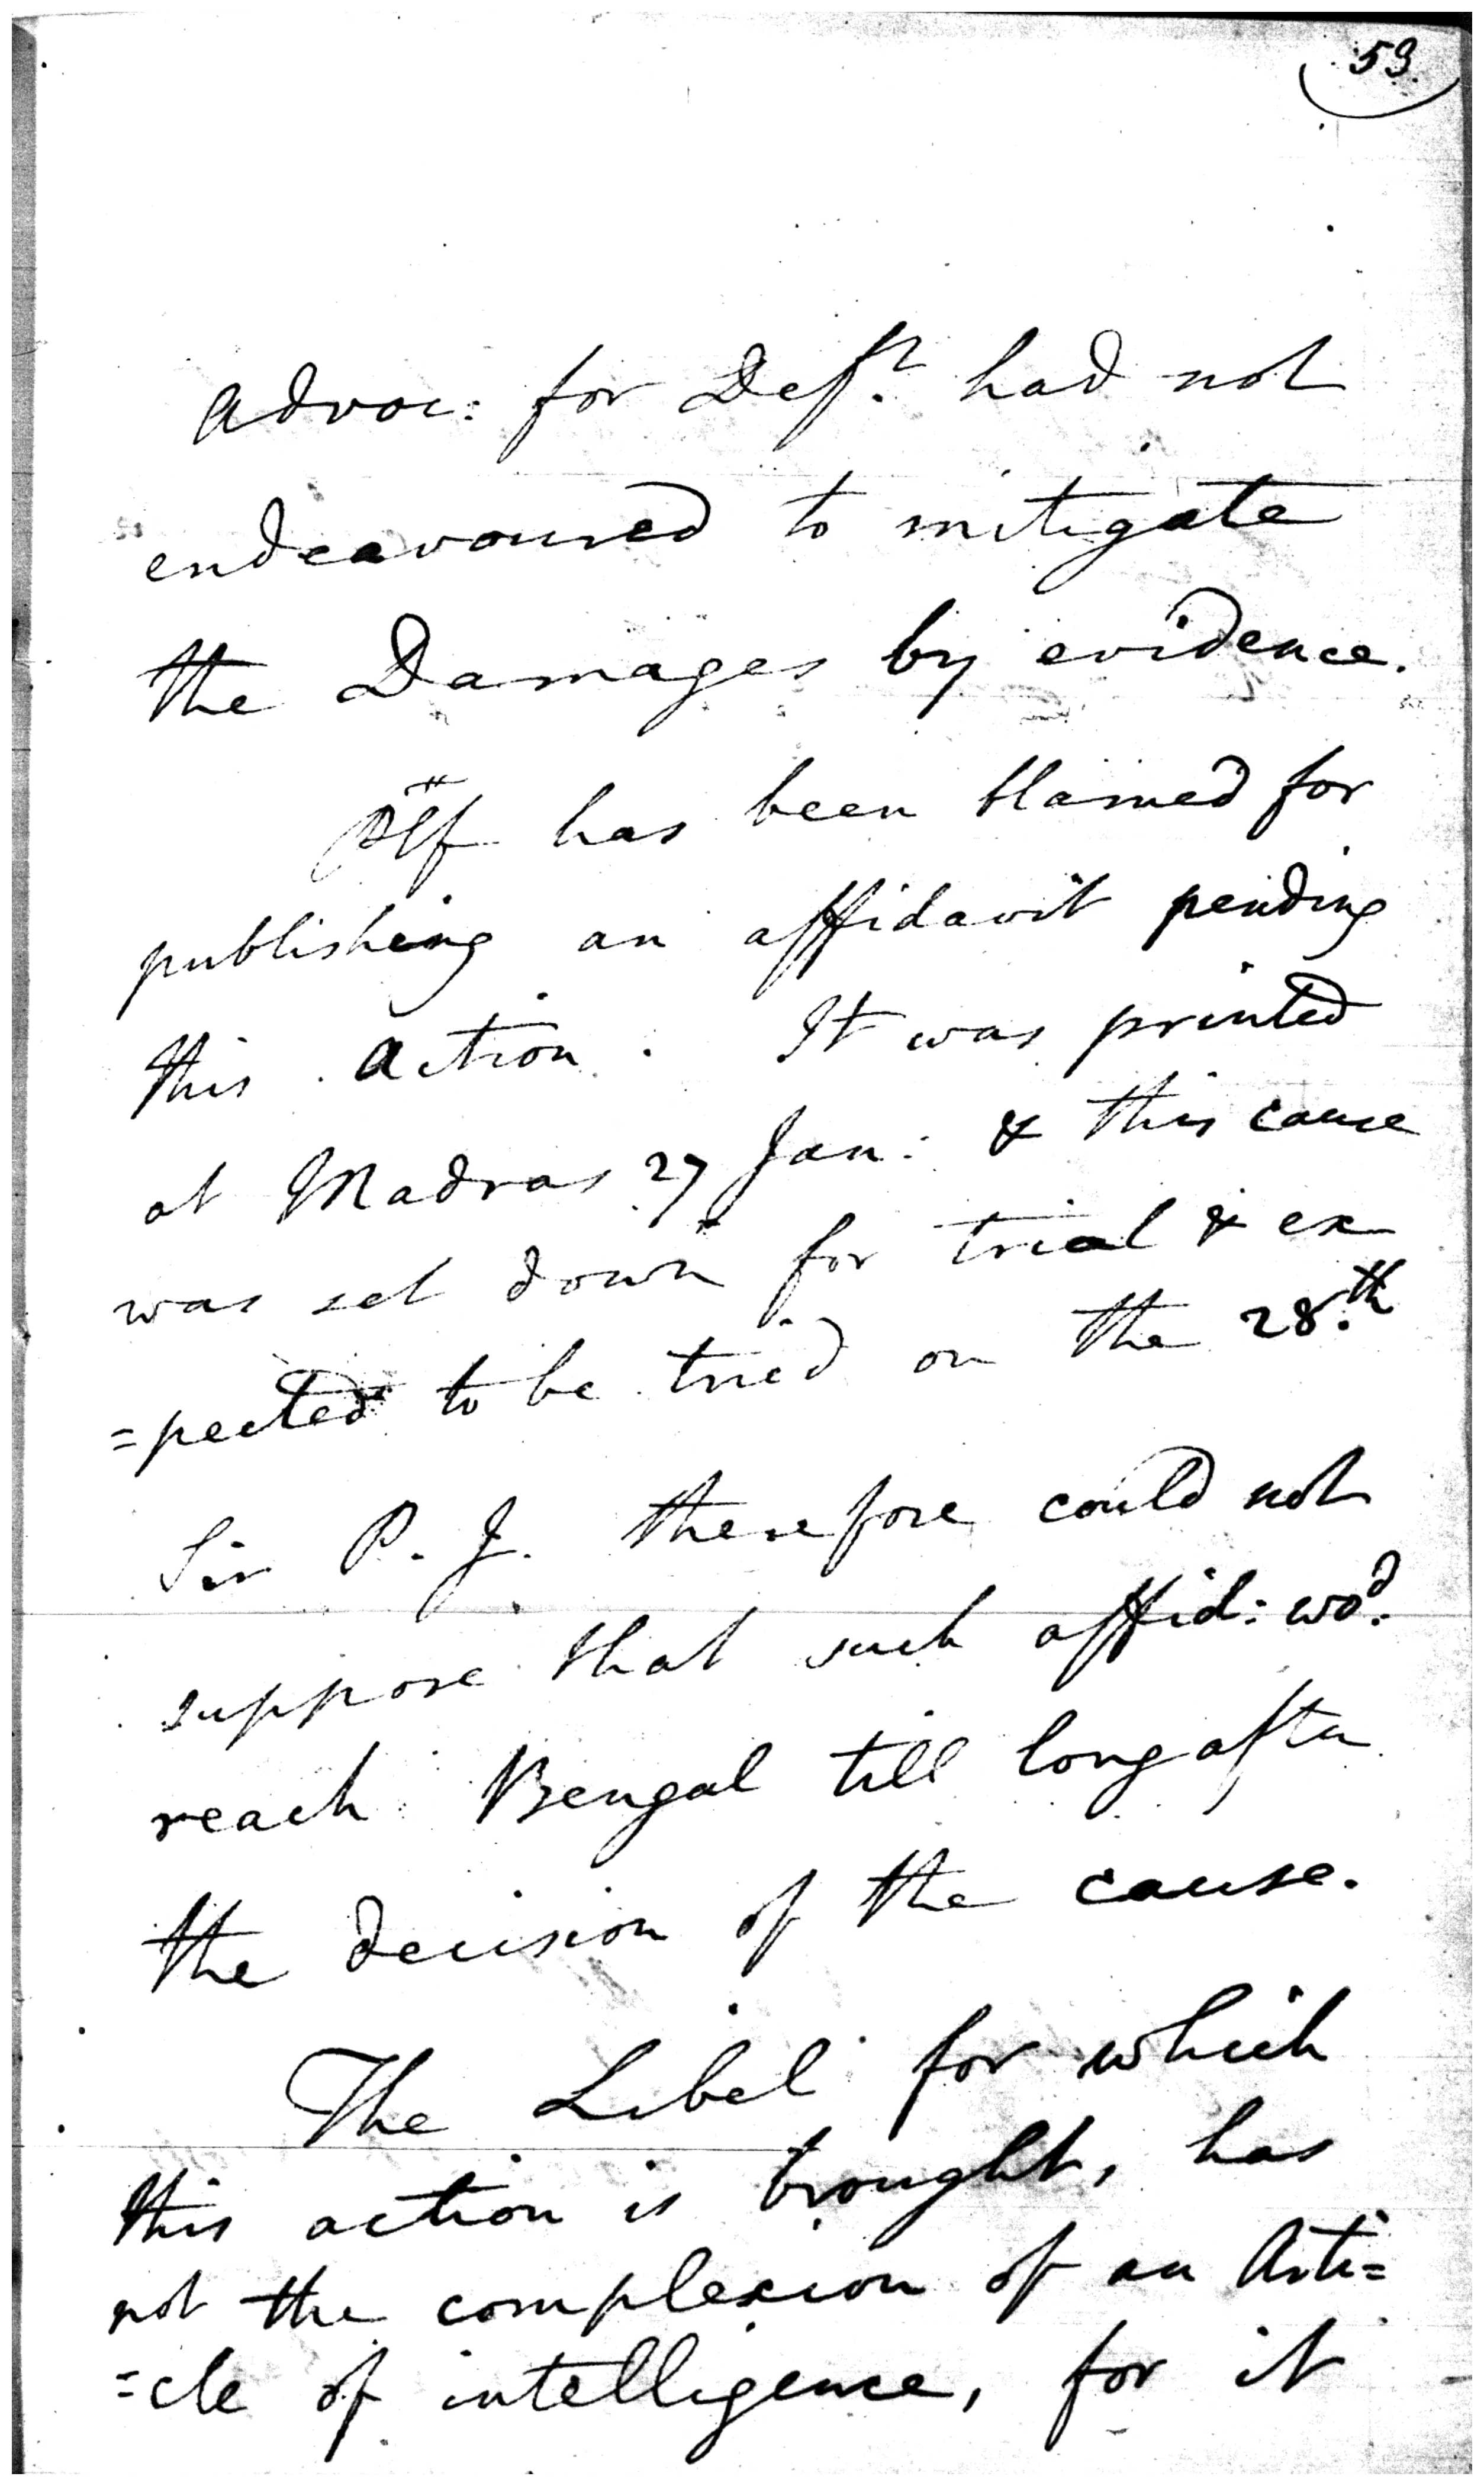 59.
Advoc: for Deft. had not
endeavoured to mitigate
the Damages by evidence.
Pltff has been blamed for
publishing an affidavit pending
this Action. It was printed
at Madras 27 Jan: & this cause
was set down for trial & ex
=pected to be tried on the 28.th
Sir P. J. therefore could not
suppose that such affid: wod.
reach Bengal till long after
the decision of the cause.
The Libel for which
this action is brought, has
not the complexion of an Arti=
=cle of intelligence, for it